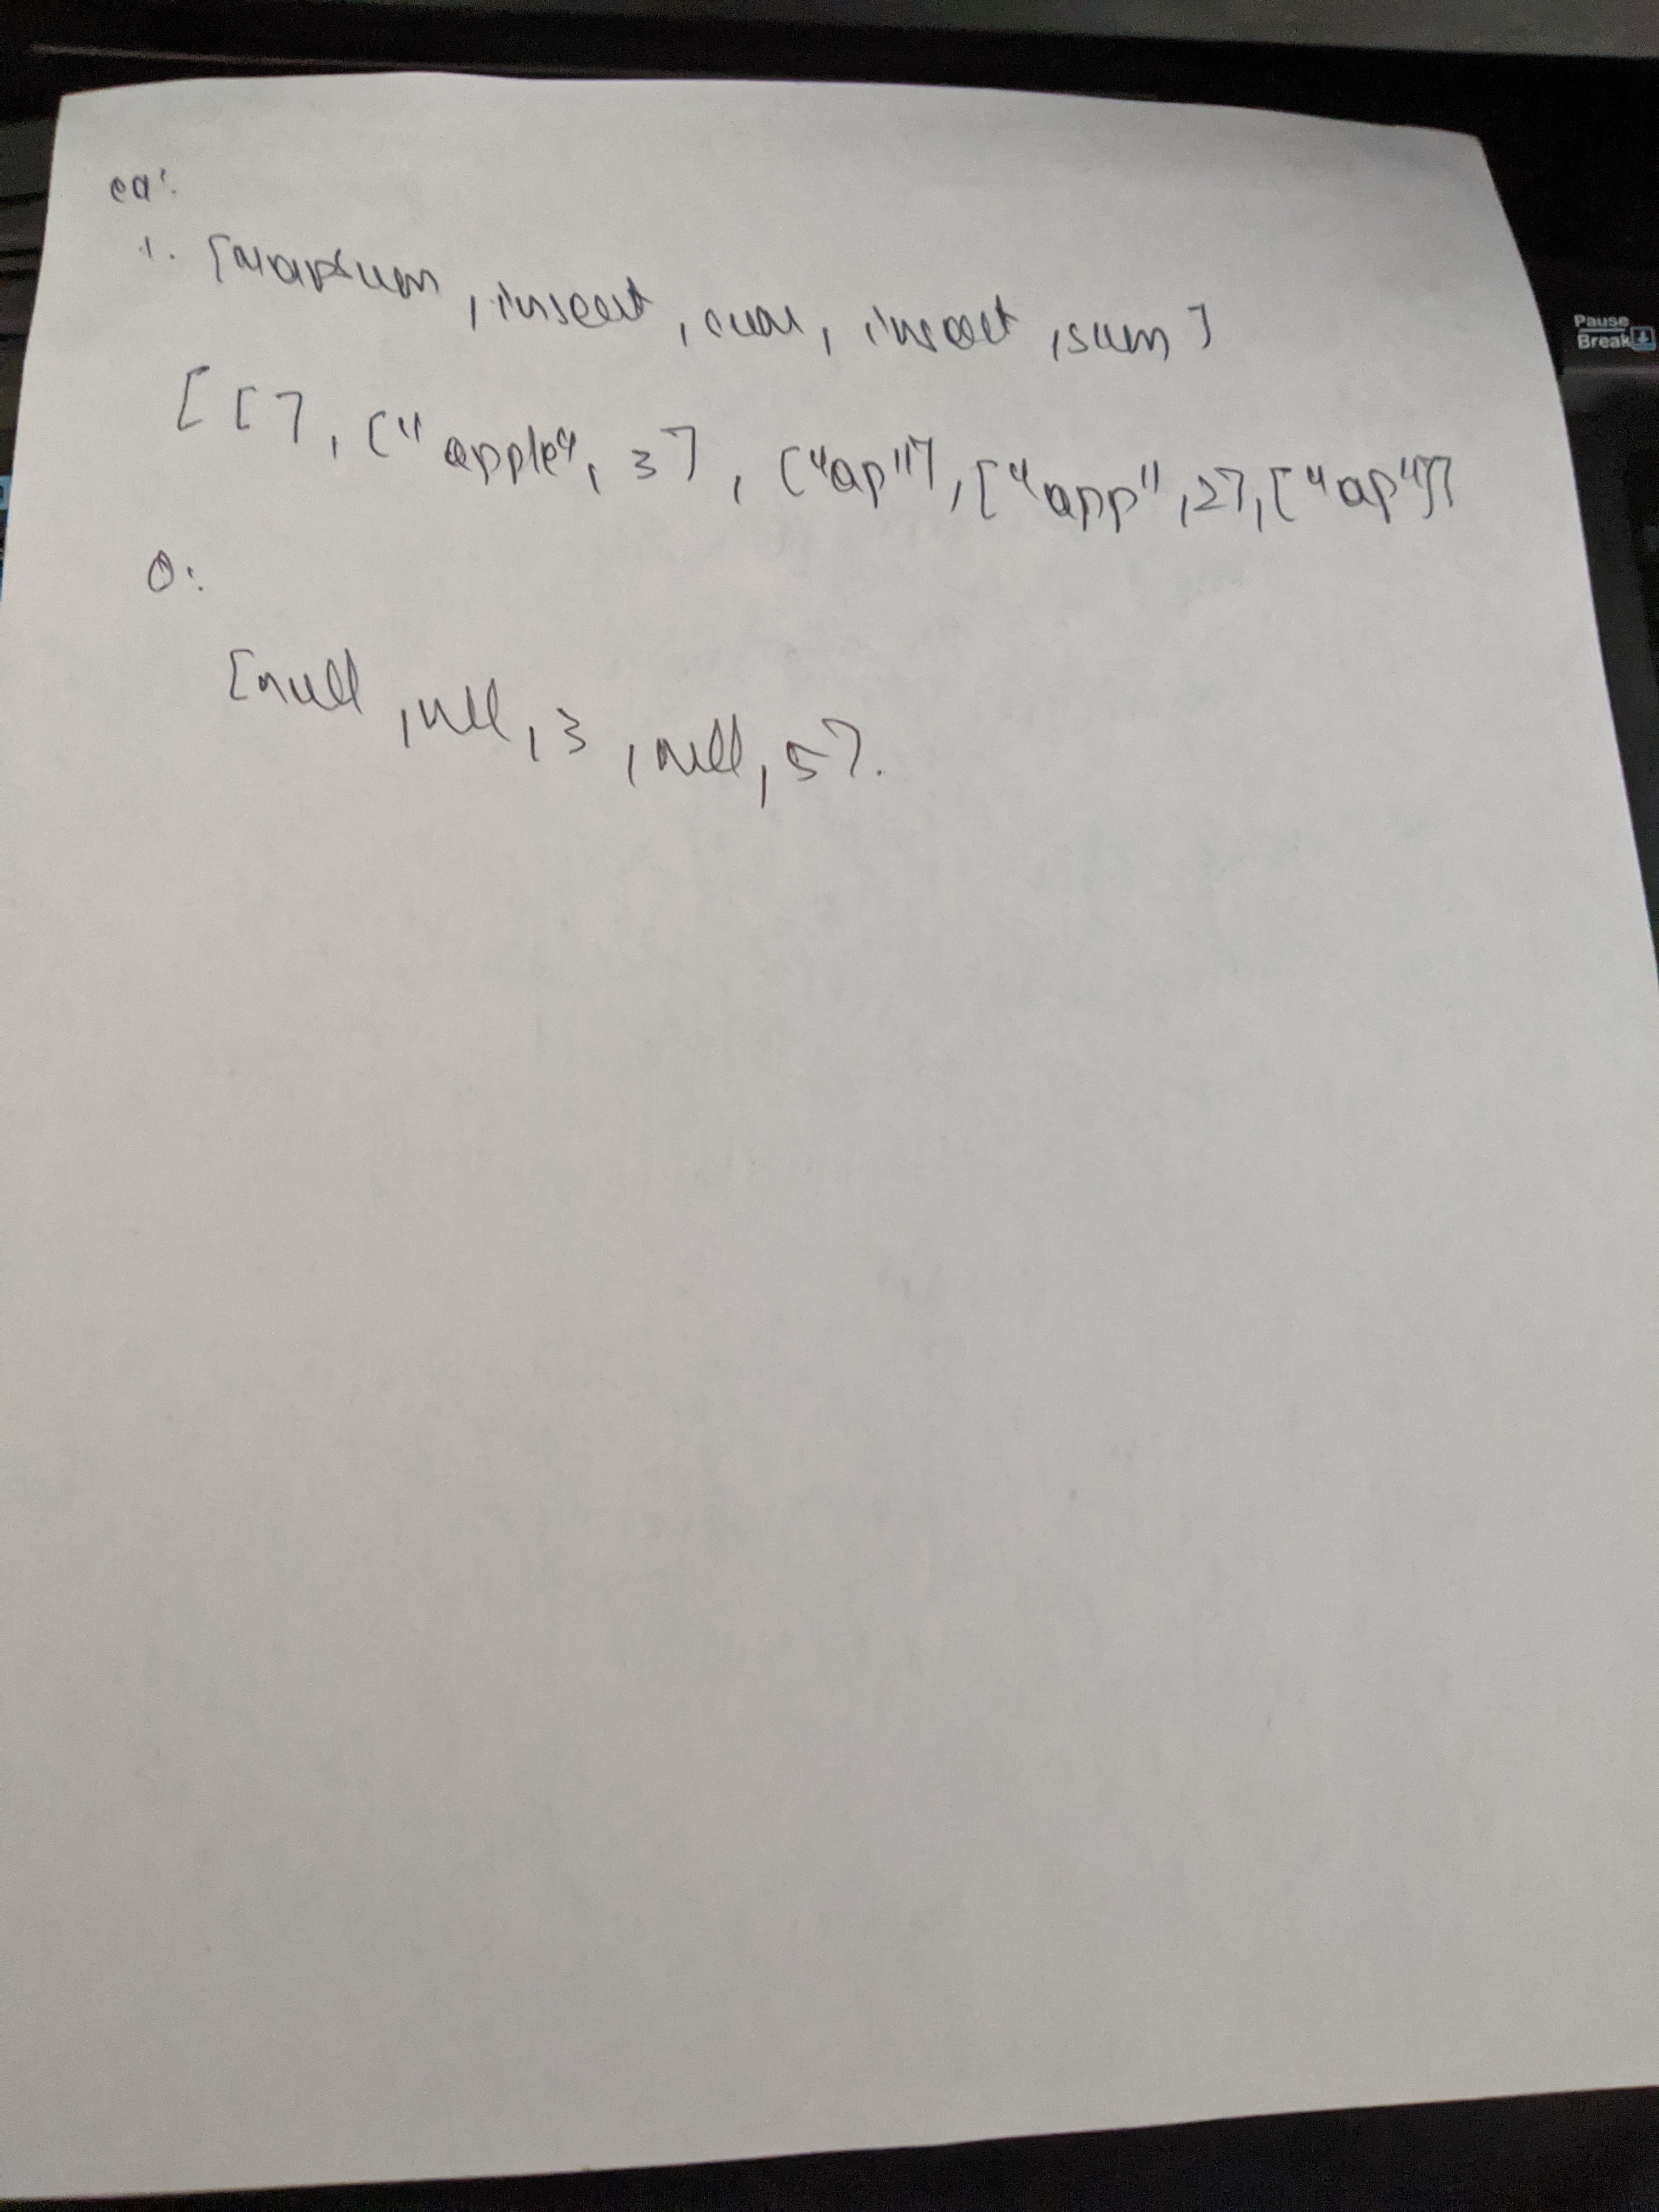 eg:
1. [Mapsum, insert, sum, insert, sum]
[[], ["apple", 3], ["ap"], ["app", 2], ["ap"]]
O:
[null, null, 3, null, 5].
Pause
Break